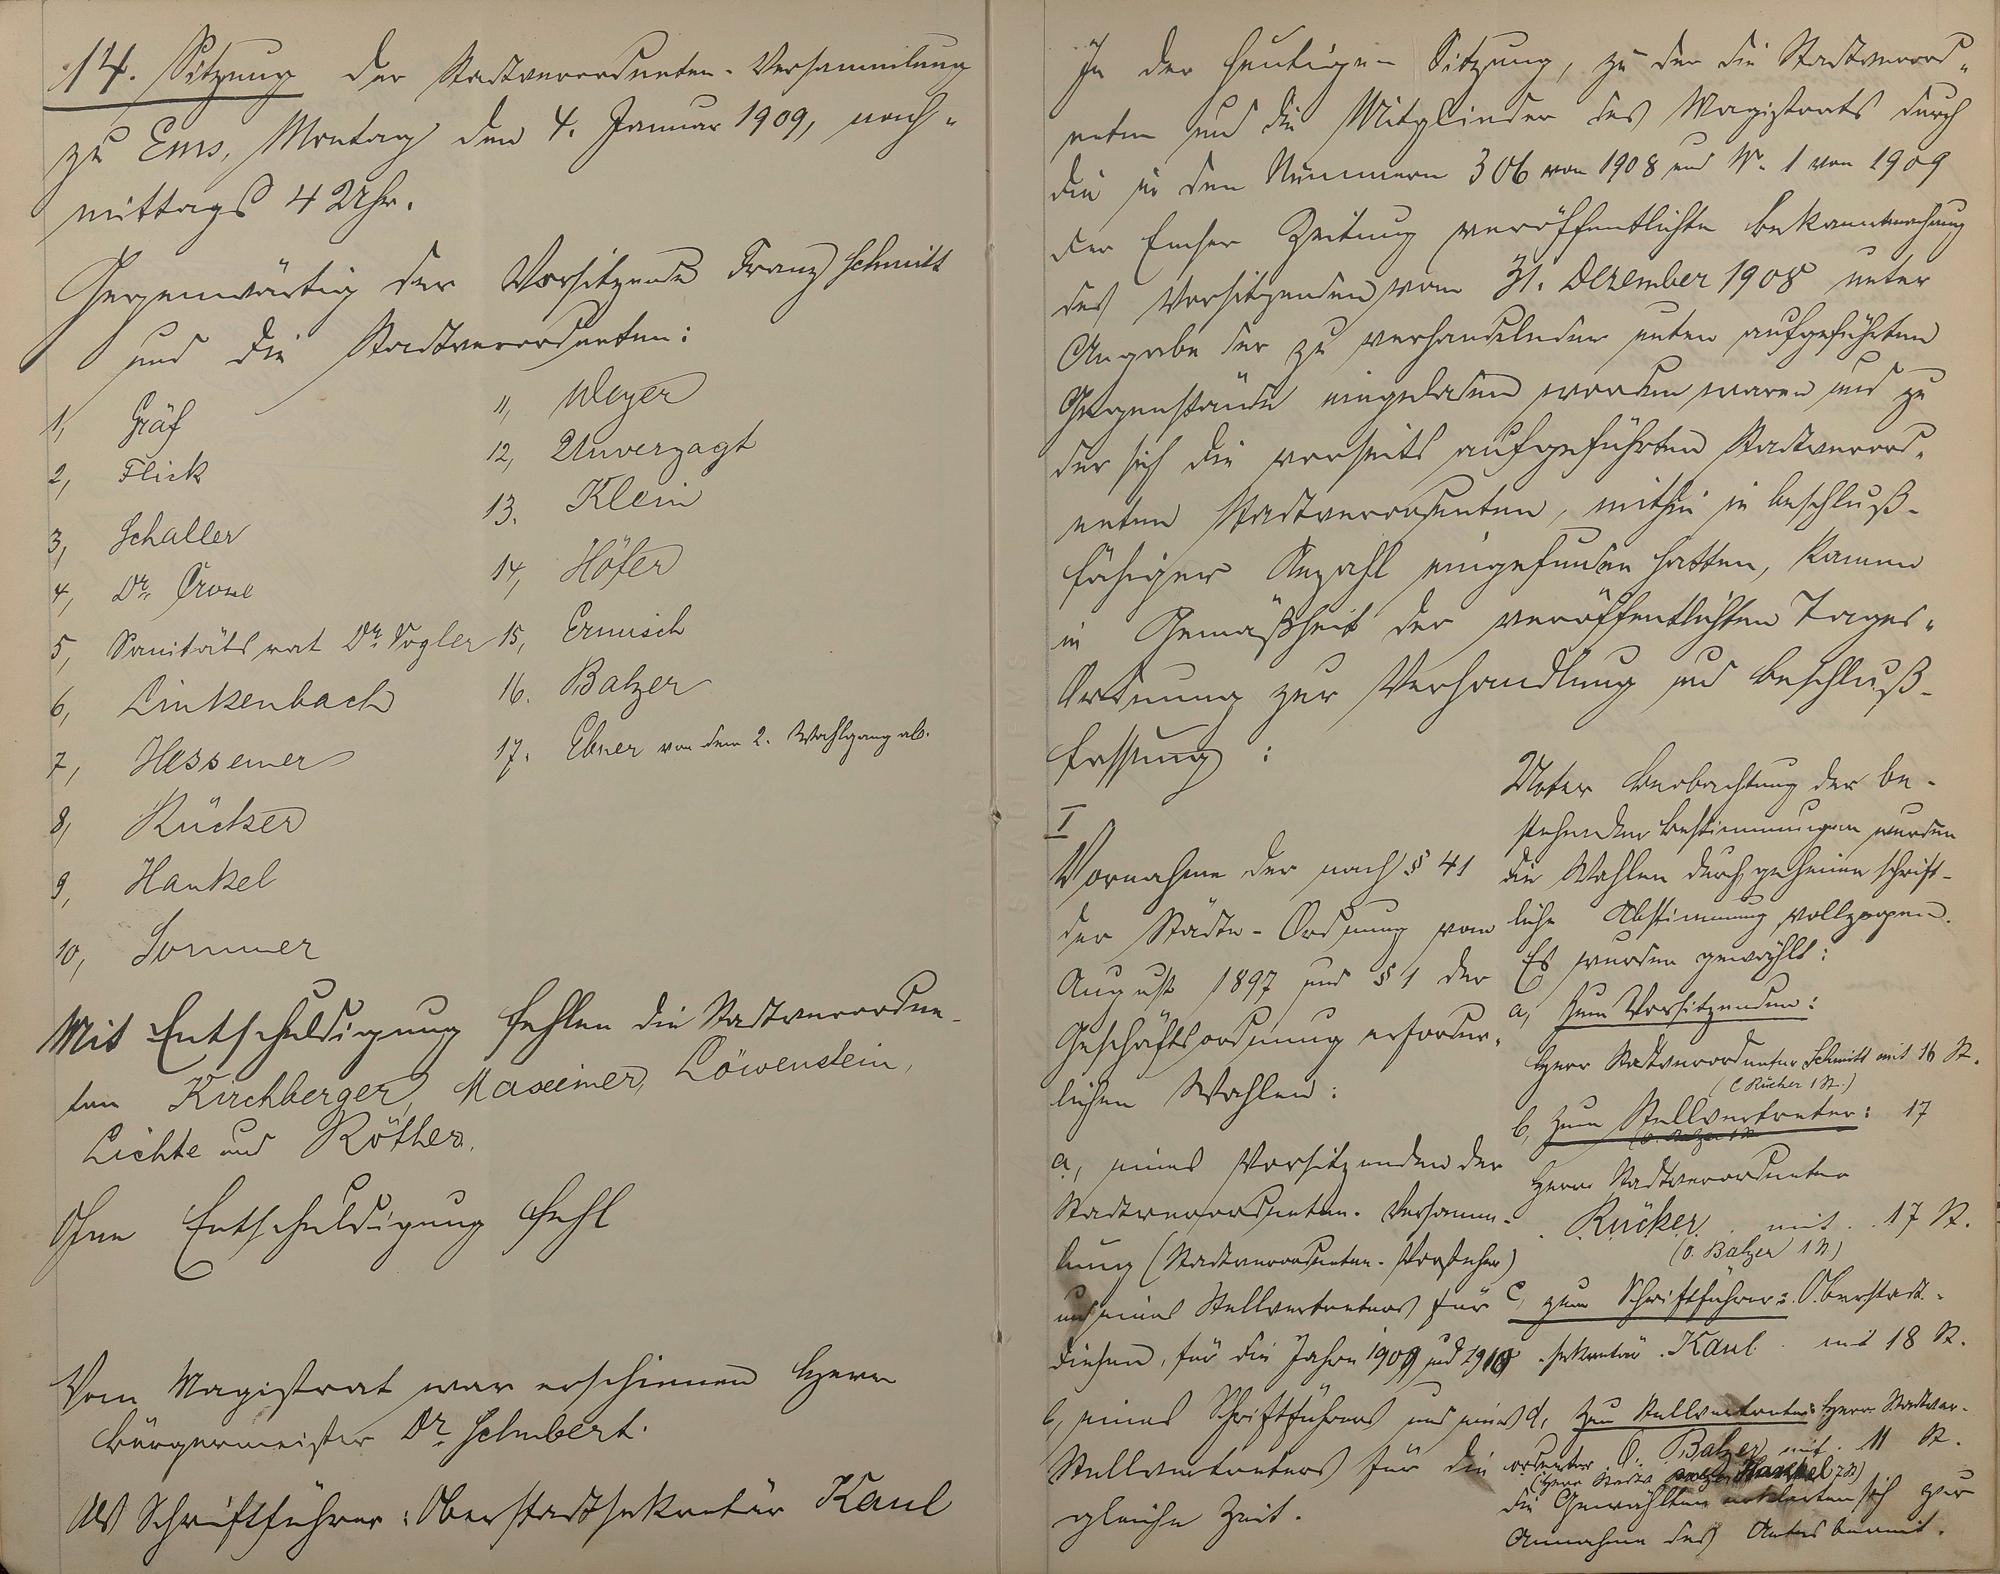 14. Sitzung der Stadtverordneten-Versammlung
zu Ems, Montag den 4. Januar 1909, nach-
mittags 4 Uhr.
Gegenwärtig der Vorsitzende Franz Schmitt
und die Stadtverordneten:
1, Gräf
2, Flick
3, Schaller
4, Dr. Crone
5, Sanitätsrat Dr. Vogler
6, Linkenbach
7, Hessemer
8, Rücker
9, Hankel
10, Sommer
11, Meyer
12, Unverzagt
13. Klein
14, Höfer
15, Ermisch
16. Balzer
17. Ebner von dem 2. Wahlgang ab.
Mit Entschuldigung fehlen die Stadtverordne-
ten Kirchberger, Maxeiner, Löwenstein,
Lichte und Röther.
Ohne Entschuldigung fehlt
Vom Magistrat war erschienen Herr
Bürgermeister Dr. Schubert.
Als Schriftführer: Oberstadtsekretär Kaul
In der heutigen Sitzung, zu der die Stadtverord-
neten und die Mitglieder des Magistrats durch
die in den Nummern 306 von 1908 und Nr. 1 von 1909
der Emser Zeitung veröffentlichte Bekanntmachung
des Vorsitzenden vom 31. Dezember 1908 unter
Angabe der zu verhandelnden unten aufgeführten
Gegenstände eingeladen worden waren und zu
der sich die vorseits aufgeführten Stadtverord-
neten Stadtverordneten, mithin in beschluß-
fähiger Anzahl eingefunden hatten, kamen
in Gemäßheit der veröffentlichten Tages-
Ordnung zur Verhandlung und Beschluß-
fassung:
I
Vornahme der nach § 41
der Städte-Ordnung vom
August 1897 und § 1 der
Geschäftsordnung erforder-
lichen Wahlen:
a, eines Vorsitzenden der
Stadtverordneten-Versamm-
lung (Stadtverordneten-Vorsteher)
und eines Stellvertreters für
diesen, für die Jahre 1909 und 1910
b, eines Schriftführers und eines
Stellvertreters für die
gleiche Zeit.
Unter Beobachtung der be-
stehenden Bestimmungen wurden
die Wahlen durch geheime schrift-
liche Abstimmung vollzogen.
Es wurden gewählt:
a, zum Vorsitzenden:
Herr Stadtverordneter Schmitt mit 16 St.
(C. Rücker 1 St.)
b, zum Stellvertreter: 17
(O. Balzer 1 St.
Herr Stadtverordneter
Rücker mit 17 St.
(O. Balzer 1 St)
c, zum Schriftführer: Oberstadt-
sekretär Kaul mit 18 St.
d, zum Stellvertreter: Herr Stadtver-
ordneter O. Balzer mit 11 St.
(Herr Stadtv. Hankel 7 St)
die Gewählten erklärten sich zur
Annahme des Amtes bereit.